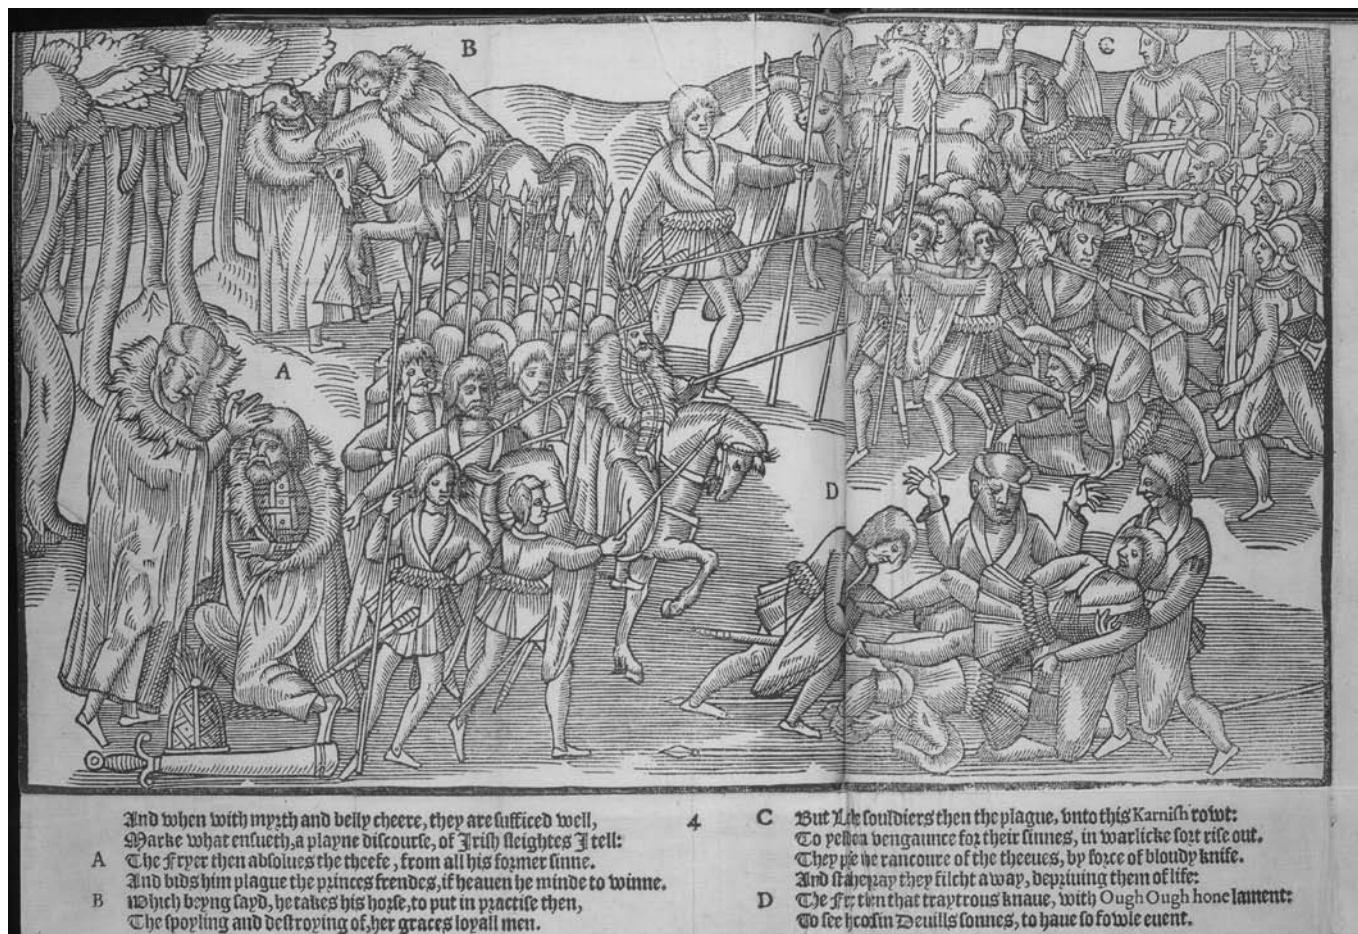 B
C
A
D
And when with myrth and belly cheere, they are sufficed well,
Marke what ensueth, a playne discourse, of Irish sleightes I tell:
A The Fryer then absolues the theefe, from all his former sinne.
And bids him plague the princes frendes, if heauen he minde to winne.
B Which beyng sayd, he takes his horse, to put in practise then,
The spoyling and destroying of, her graces loyall men.
4
C But souldiers then the plague, vnto this Karnish rowt:
To vengaunce for their sinnes, in warlicke sort rise out.
They the rancoure of the theeues, by force of bloudy knife.
And they filcht away, depriuing them of life:
D The that traytrous knaue, with Ough Ough hone lament:
To see Deuills sonnes, to haue so fowle euent.